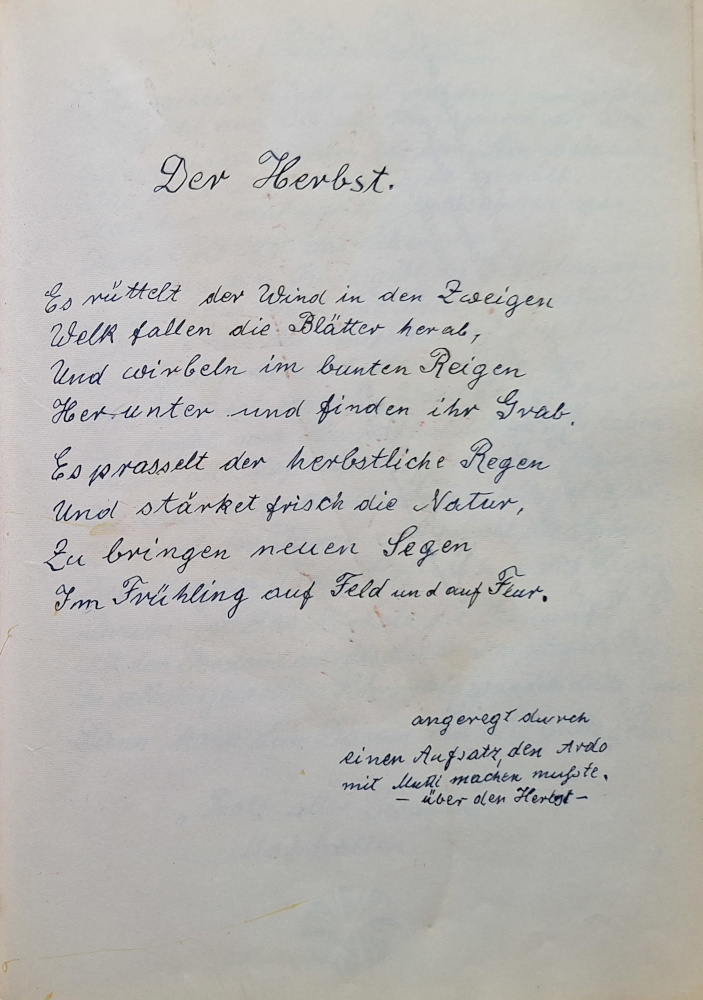 Der Herbst.
Es rüttelt der Wind in den Zweigen
Welk fallen die Blätter herab,
Und wirbeln im bunten Reigen
Herunter und finden ihr Grab.
Es prasselt der herbstliche Regen
Und stärket frisch die Natur,
Zu bringen neuen Segen
Im Frühling auf Feld und auf Flur.
angeregt durch
einen Aufsatz, den Ardo
mit Mutti machen mußte.
– über den Herbst –